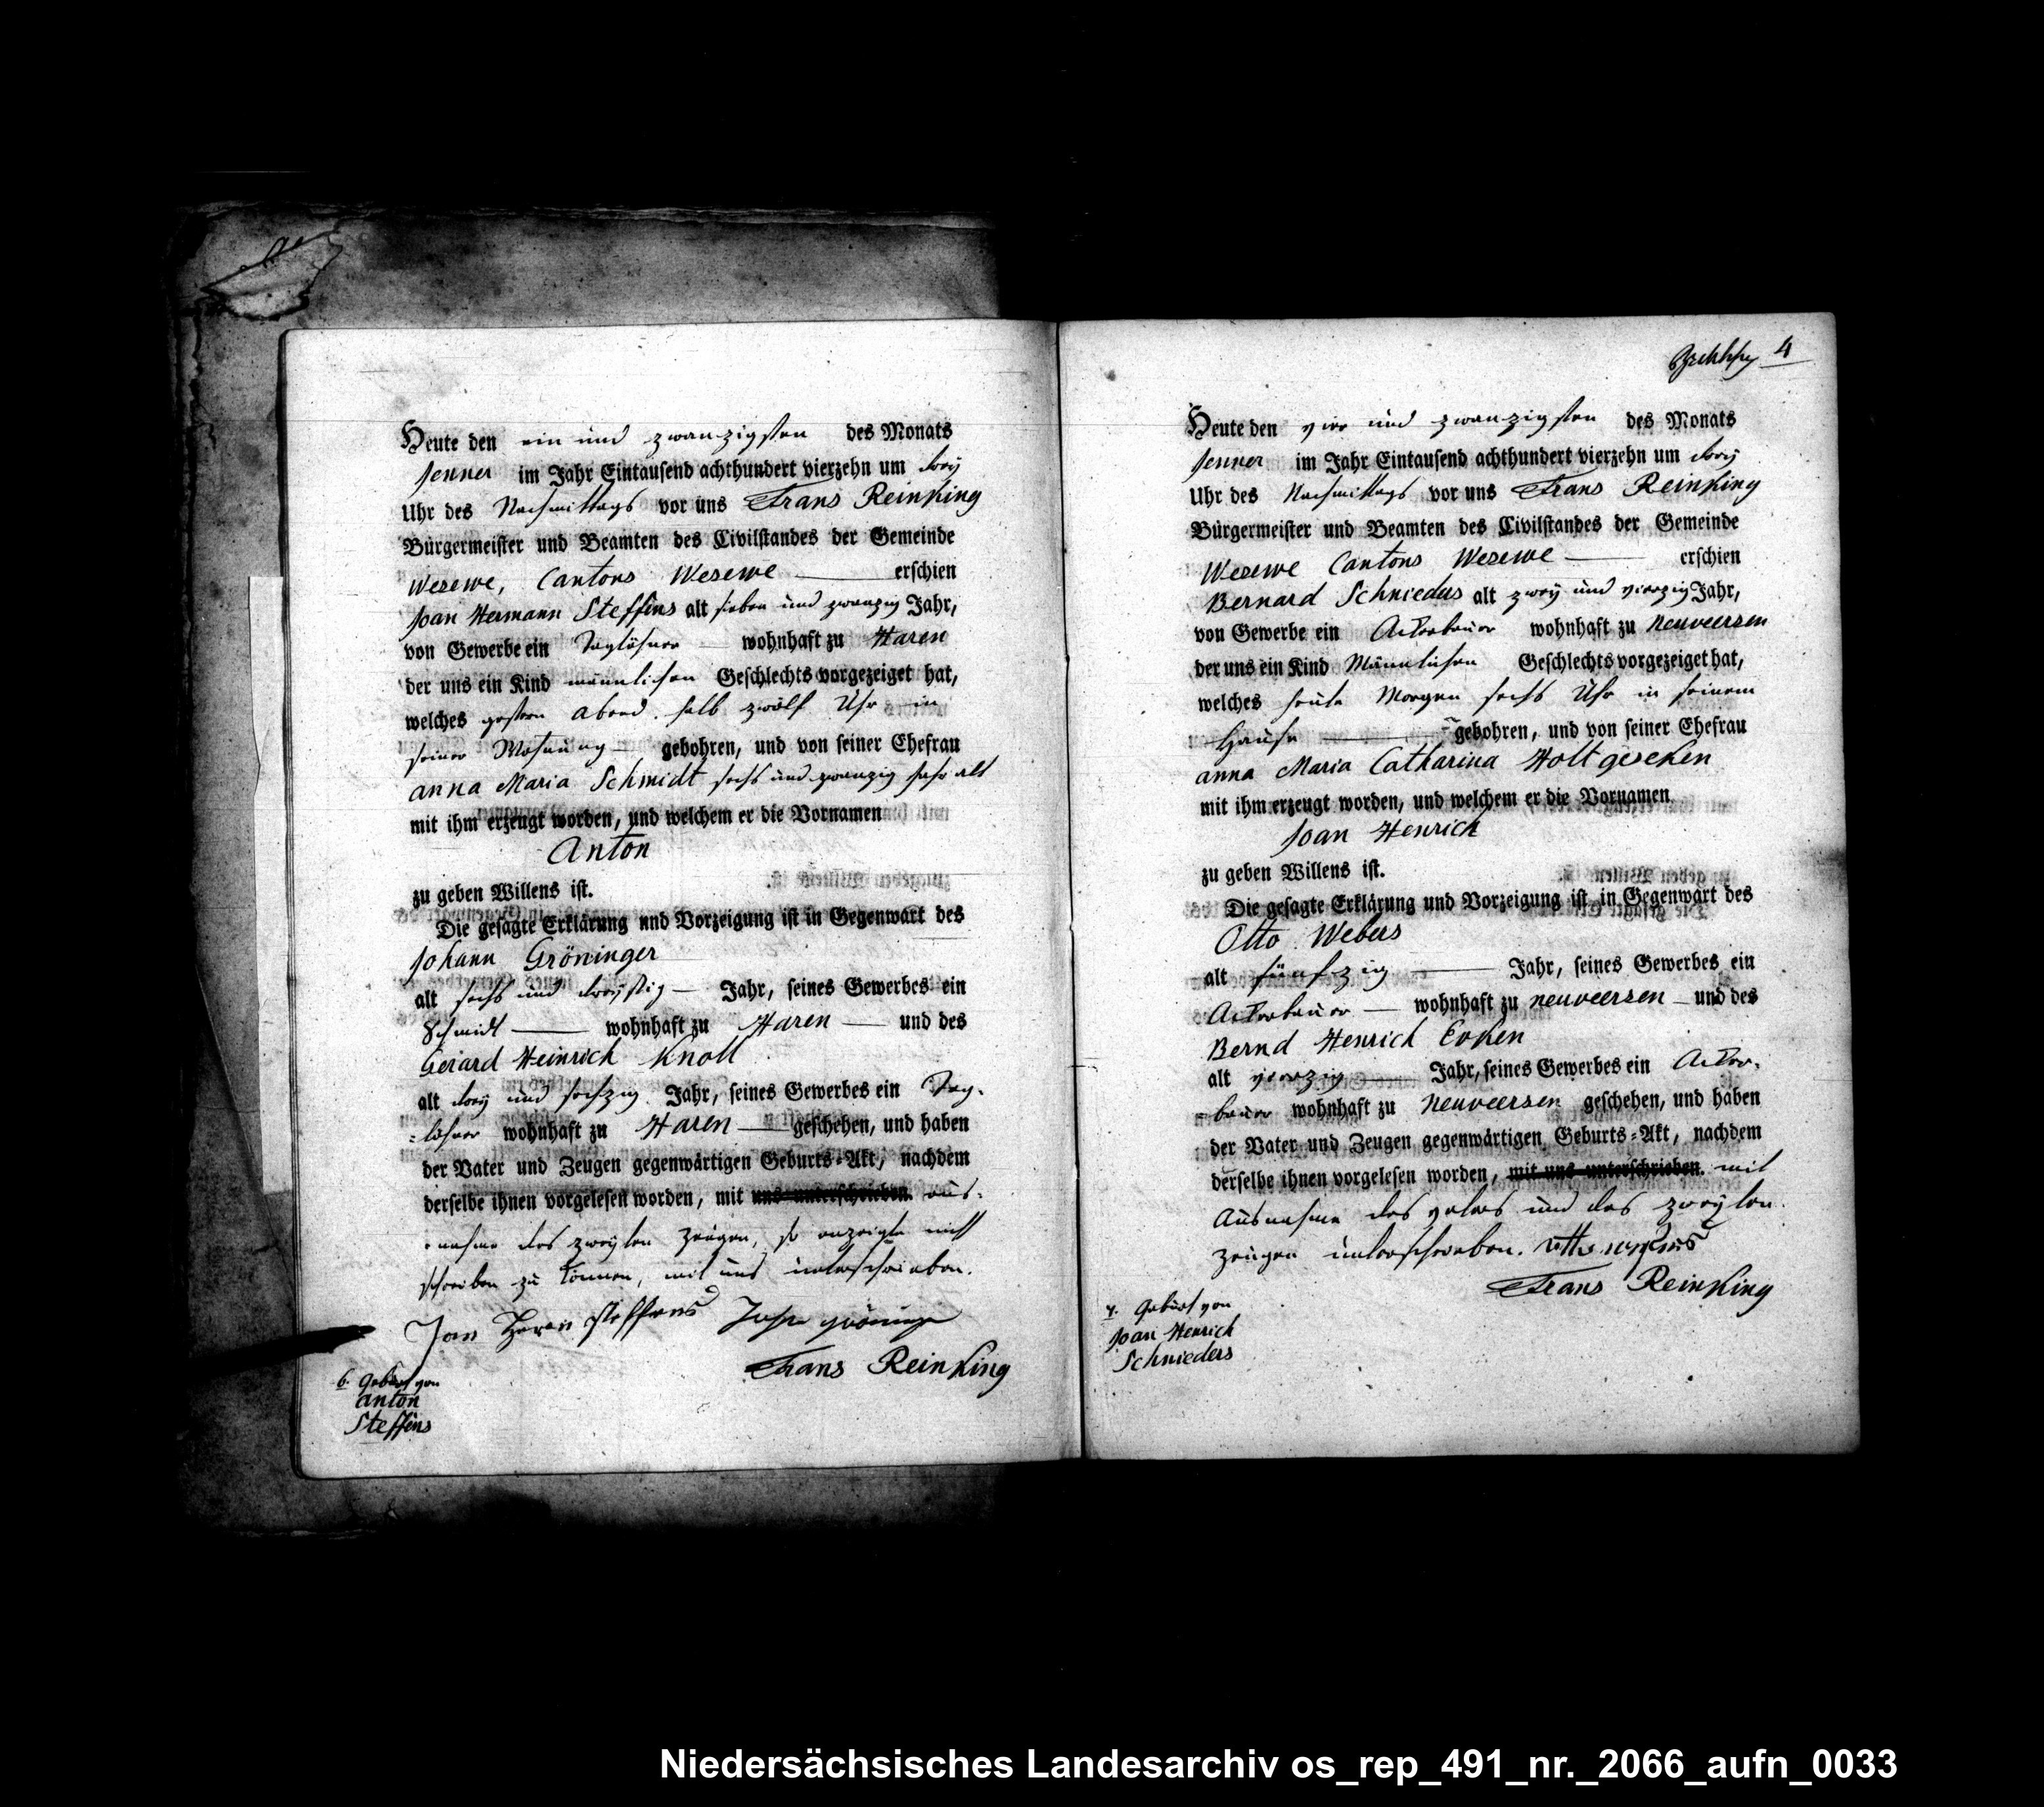 Heute den ein und zwanzigsten des Monats
Jenner im Jahr Eintausend achthundert vierzehn um drey
Uhr des Nachmittags vor uns Frans Reinking
Bürgermeister und Beamten des Civilstandes der Gemeinde
Wesewe, Cantons Wesewe erschien
Joan Hermann Steffens alt sieben und zwanzig Jahr,
von Gewerbe ein Taglöhner wohnhaft zu Haren
der uns ein Kind männlichen Geschlechts vorgezeiget hat,
welches gestern Abend halb zwölf Uhr in
seiner Wohnung gebohren, und von seiner Ehefrau
anna Maria Schmidt sechs und zwanzig Jahr alt
mit ihm erzeugt worden, und welchem er die Vornamen
Anton
zu geben Willens ist.
Die gesagte Erklärung und Vorzeigung ist in Gegenwart des
Johann Gröninger
alt sechs und dreyssig Jahr, seines Gewerbes ein
Schmidt wohnhaft zu Haren und des
Gerard Heinrich Knoll
alt drey und sechzig Jahr, seines Gewerbes ein Tag-
=löhner wohnhaft zu Haren geschehen, und haben
der Vater und Zeugen gegenwärtigen Geburts=Akt, nachdem
derselbe ihnen vorgelesen worden, mit uns unterschrieben. aus-
-nahme des zweyten Zeugen, so anzeigte nicht
schreiben zu können, mit uns unterschrieben.
Jan Herm Steffens Joh gröninger
Frans Reinking
6. Geburt von
Anton
Steffens
4
Heute den vier und zwanzigsten des Monats
Jenner im Jahr Eintausend achthundert vierzehn um drey
Uhr des Nachmittags vor uns Frans Reinking
Bürgermeister und Beamten des Civilstandes der Gemeinde
Wesewe Cantons Wesewe erschien
Bernard Schnieders alt zwey und vierzig Jahr,
von Gewerbe ein Ackerbauer wohnhaft zu neuveersen
der uns ein Kind Männlichen Geschlechts vorgezeiget hat,
welches heute Morgen sechs Uhr in seinem
Hause gebohren, und von seiner Ehefrau
anna Maria Catharina Holtgereken
mit ihm erzeugt worden, und welchem er die Vornamen
Joan Henrich
zu geben Willens ist.
Die gesagte Erklärung und Vorzeigung ist in Gegenwart des
Otto Webers
alt fünfzig Jahr, seines Gewerbes ein
Ackerbauer wohnhaft zu neuveersen und des
Bernd Henrich Erken
alt vierzig Jahr, seines Gewerbes ein Acker-
=bauer wohnhaft zu Neuveersen geschehen, und haben
der Vater und Zeugen gegenwärtigen Geburts=Akt, nachdem
derselbe ihnen vorgelesen worden, mit uns unterschrieben. mit
Ausnahme des vaters und des zweyten
Zeugen unterschrieben.
Frans Reinking
7. Geburt von
Joan Henrich
Schnieders
Niedersächsisches Landesarchiv os_rep_491_nr._2066_aufn_0033